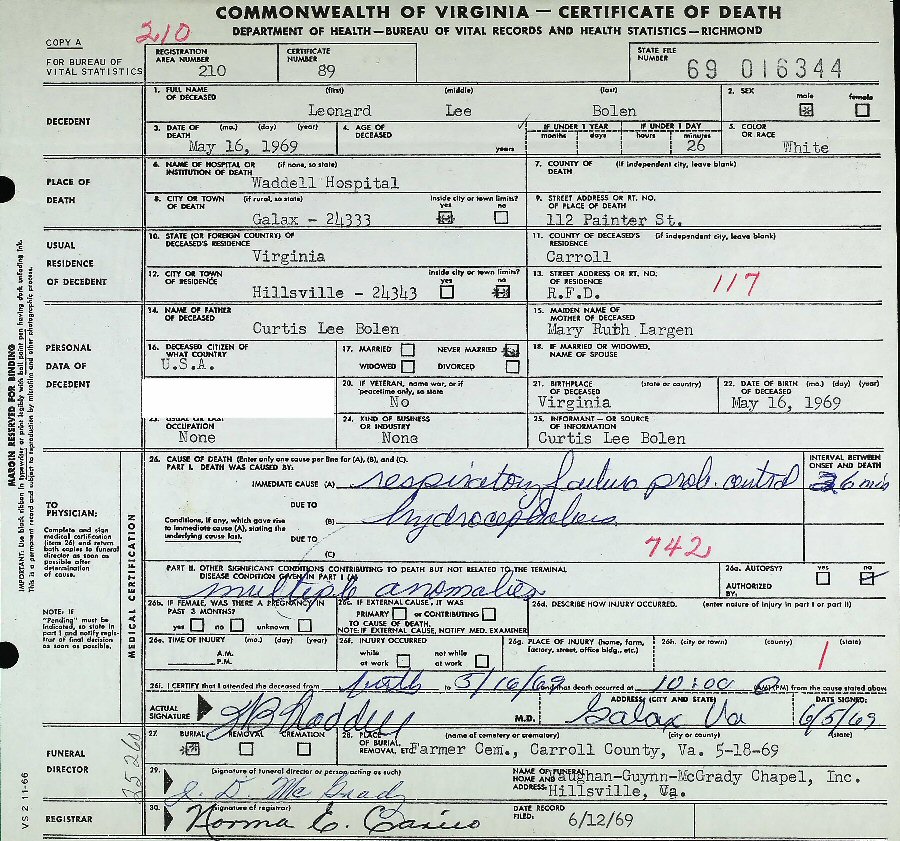 COMMONWEALTH OF VIRGINIA — CERTIFICATE OF DEATH
DEPARTMENT OF HEALTH—BUREAU OF VITAL RECORDS AND HEALTH STATISTICS—RICHMOND
210
COPY A
FOR BUREAU OF VITAL STATISTICS
REGISTRATION AREA NUMBER 210
CERTIFICATE NUMBER 89
STATE FILE NUMBER 69 016344
DECEDENT
1. FULL NAME OF DECEASED (first) (middle) (last)
Leonard Lee Bolen
2. SEX male female
3. DATE OF DEATH (mo.) (day) (year)
May 16, 1969
4. AGE OF DECEASED years
IF UNDER 1 YEAR months days
IF UNDER 1 DAY hours minutes
26
5. COLOR OR RACE
White
PLACE OF DEATH
6. NAME OF HOSPITAL OR INSTITUTION OF DEATH (if none, so state)
Waddell Hospital
7. COUNTY OF DEATH (if independent city, leave blank)
8. CITY OR TOWN OF DEATH (if rural, so state) inside city or town limits? yes no
Galax - 24333
9. STREET ADDRESS OR RT. NO. OF PLACE OF DEATH
112 Painter St.
USUAL RESIDENCE OF DECEDENT
10. STATE (OR FOREIGN COUNTRY) OF DECEASED'S RESIDENCE
Virginia
11. COUNTY OF DECEASED'S RESIDENCE (if independent city, leave blank)
Carroll
12. CITY OR TOWN OF RESIDENCE inside city or town limits? yes no
Hillsville - 24343
13. STREET ADDRESS OR RT. NO. OF RESIDENCE
R.F.D.
117
PERSONAL DATA OF DECEDENT
14. NAME OF FATHER OF DECEASED
Curtis Lee Bolen
15. MAIDEN NAME OF MOTHER OF DECEASED
Mary Ruth Largen
16. DECEASED CITIZEN OF WHAT COUNTRY
U.S.A.
17. MARRIED NEVER MARRIED
WIDOWED DIVORCED
18. IF MARRIED OR WIDOWED, NAME OF SPOUSE
20. IF VETERAN, name war, or if peacetime only, so state
No
21. BIRTHPLACE OF DECEASED (state or country)
Virginia
22. DATE OF BIRTH OF DECEASED (mo.) (day) (year)
May 16, 1969
23. USUAL OR LAST OCCUPATION
None
24. KIND OF BUSINESS OR INDUSTRY
None
25. INFORMANT — OR SOURCE OF INFORMATION
Curtis Lee Bolen
MARGIN RESERVED FOR BINDING
IMPORTANT: Use black ribbon in typewriter or print legibly with ball point pen having dark unfading ink.
This is a permanent record and subject to reproduction by microfilm and other photographic process.
TO PHYSICIAN:
Complete and sign medical certification (item 26) and return both copies to funeral director as soon as possible after determination of cause.
NOTE: If "Pending" must be indicated, so state in part I and notify registrar of final decision as soon as possible.
MEDICAL CERTIFICATION
26. CAUSE OF DEATH (Enter only one cause per line for (A), (B), and (C).
PART I. DEATH WAS CAUSED BY:
INTERVAL BETWEEN ONSET AND DEATH
IMMEDIATE CAUSE (A) respiratory failure prob. central 26 min
DUE TO
Conditions, if any, which gave rise to immediate cause (A), stating the underlying cause last.
(B) hydrocephalus
DUE TO
(C)
742
PART II. OTHER SIGNIFICANT CONDITIONS CONTRIBUTING TO DEATH BUT NOT RELATED TO THE TERMINAL DISEASE CONDITION GIVEN IN PART I (A)
multiple anomalies
26a. AUTOPSY? yes no
AUTHORIZED BY:
26b. IF FEMALE, WAS THERE A PREGNANCY IN PAST 3 MONTHS?
yes no unknown
26c. IF EXTERNAL CAUSE, IT WAS
PRIMARY or CONTRIBUTING
TO CAUSE OF DEATH.
NOTE: IF EXTERNAL CAUSE, NOTIFY MED. EXAMINER
26d. DESCRIBE HOW INJURY OCCURRED. (enter nature of injury in part I or part II)
26e. TIME OF INJURY (mo.) (day) (year)
A.M.
P.M.
26f. INJURY OCCURRED
while at work not while at work
26g. PLACE OF INJURY (home, farm, factory, street, office bldg., etc.)
26h. (city or town) (county) (state)
1
26i. I CERTIFY that I attended the deceased from birth to 5/16/69 and that death occurred at 10:00 (AM) (PM) from the cause stated above
ACTUAL SIGNATURE M.D.
ADDRESS: (CITY AND STATE) Galax Va
DATE SIGNED: 6/5/69
FUNERAL DIRECTOR
27. BURIAL REMOVAL CREMATION
28. PLACE OF BURIAL, REMOVAL, ETC. (name of cemetery or crematory) (city or county) (state)
Farmer Cem., Carroll County, Va. 5-18-69
29. (signature of funeral director or person acting as such)
J. D. McGrady
NAME OF FUNERAL HOME AND ADDRESS:
Vaughan-Guynn-McGrady Chapel, Inc.
Hillsville, Va.
REGISTRAR
30. (signature of registrar)
Norma E.
DATE RECORD FILED:
6/12/69
VS 2 11-66